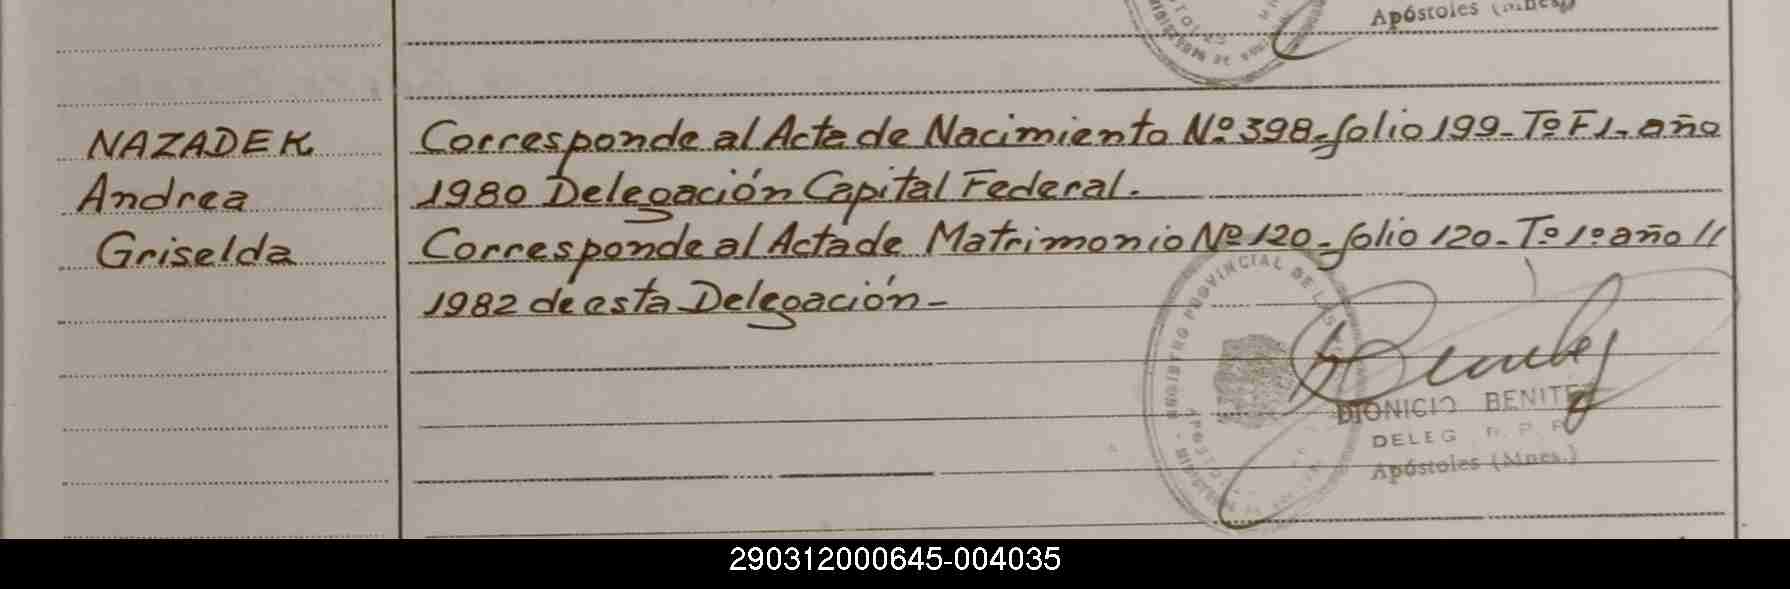 Apóstoles
NAZADEK
Andrea
Griselda
Corresponde al Acta de Nacimiento Nº 398-folio 199-Tº F1-año
1980 Delegación Capital Federal.
Corresponde al Acta de Matrimonio Nº 120-folio 120-Tº 1º año //
1982 de esta Delegación-
REGISTRO PROVINCIAL DE LAS
DIONICIO BENITEZ
DELEG. R. P. P.
Apóstoles (Mnes.)
290312000645-004035